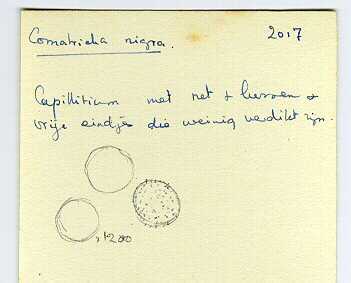 Comatricha nigra. 2017
Capillitium met net + lussen +
vrije eindjes die weinig verdikt zijn.